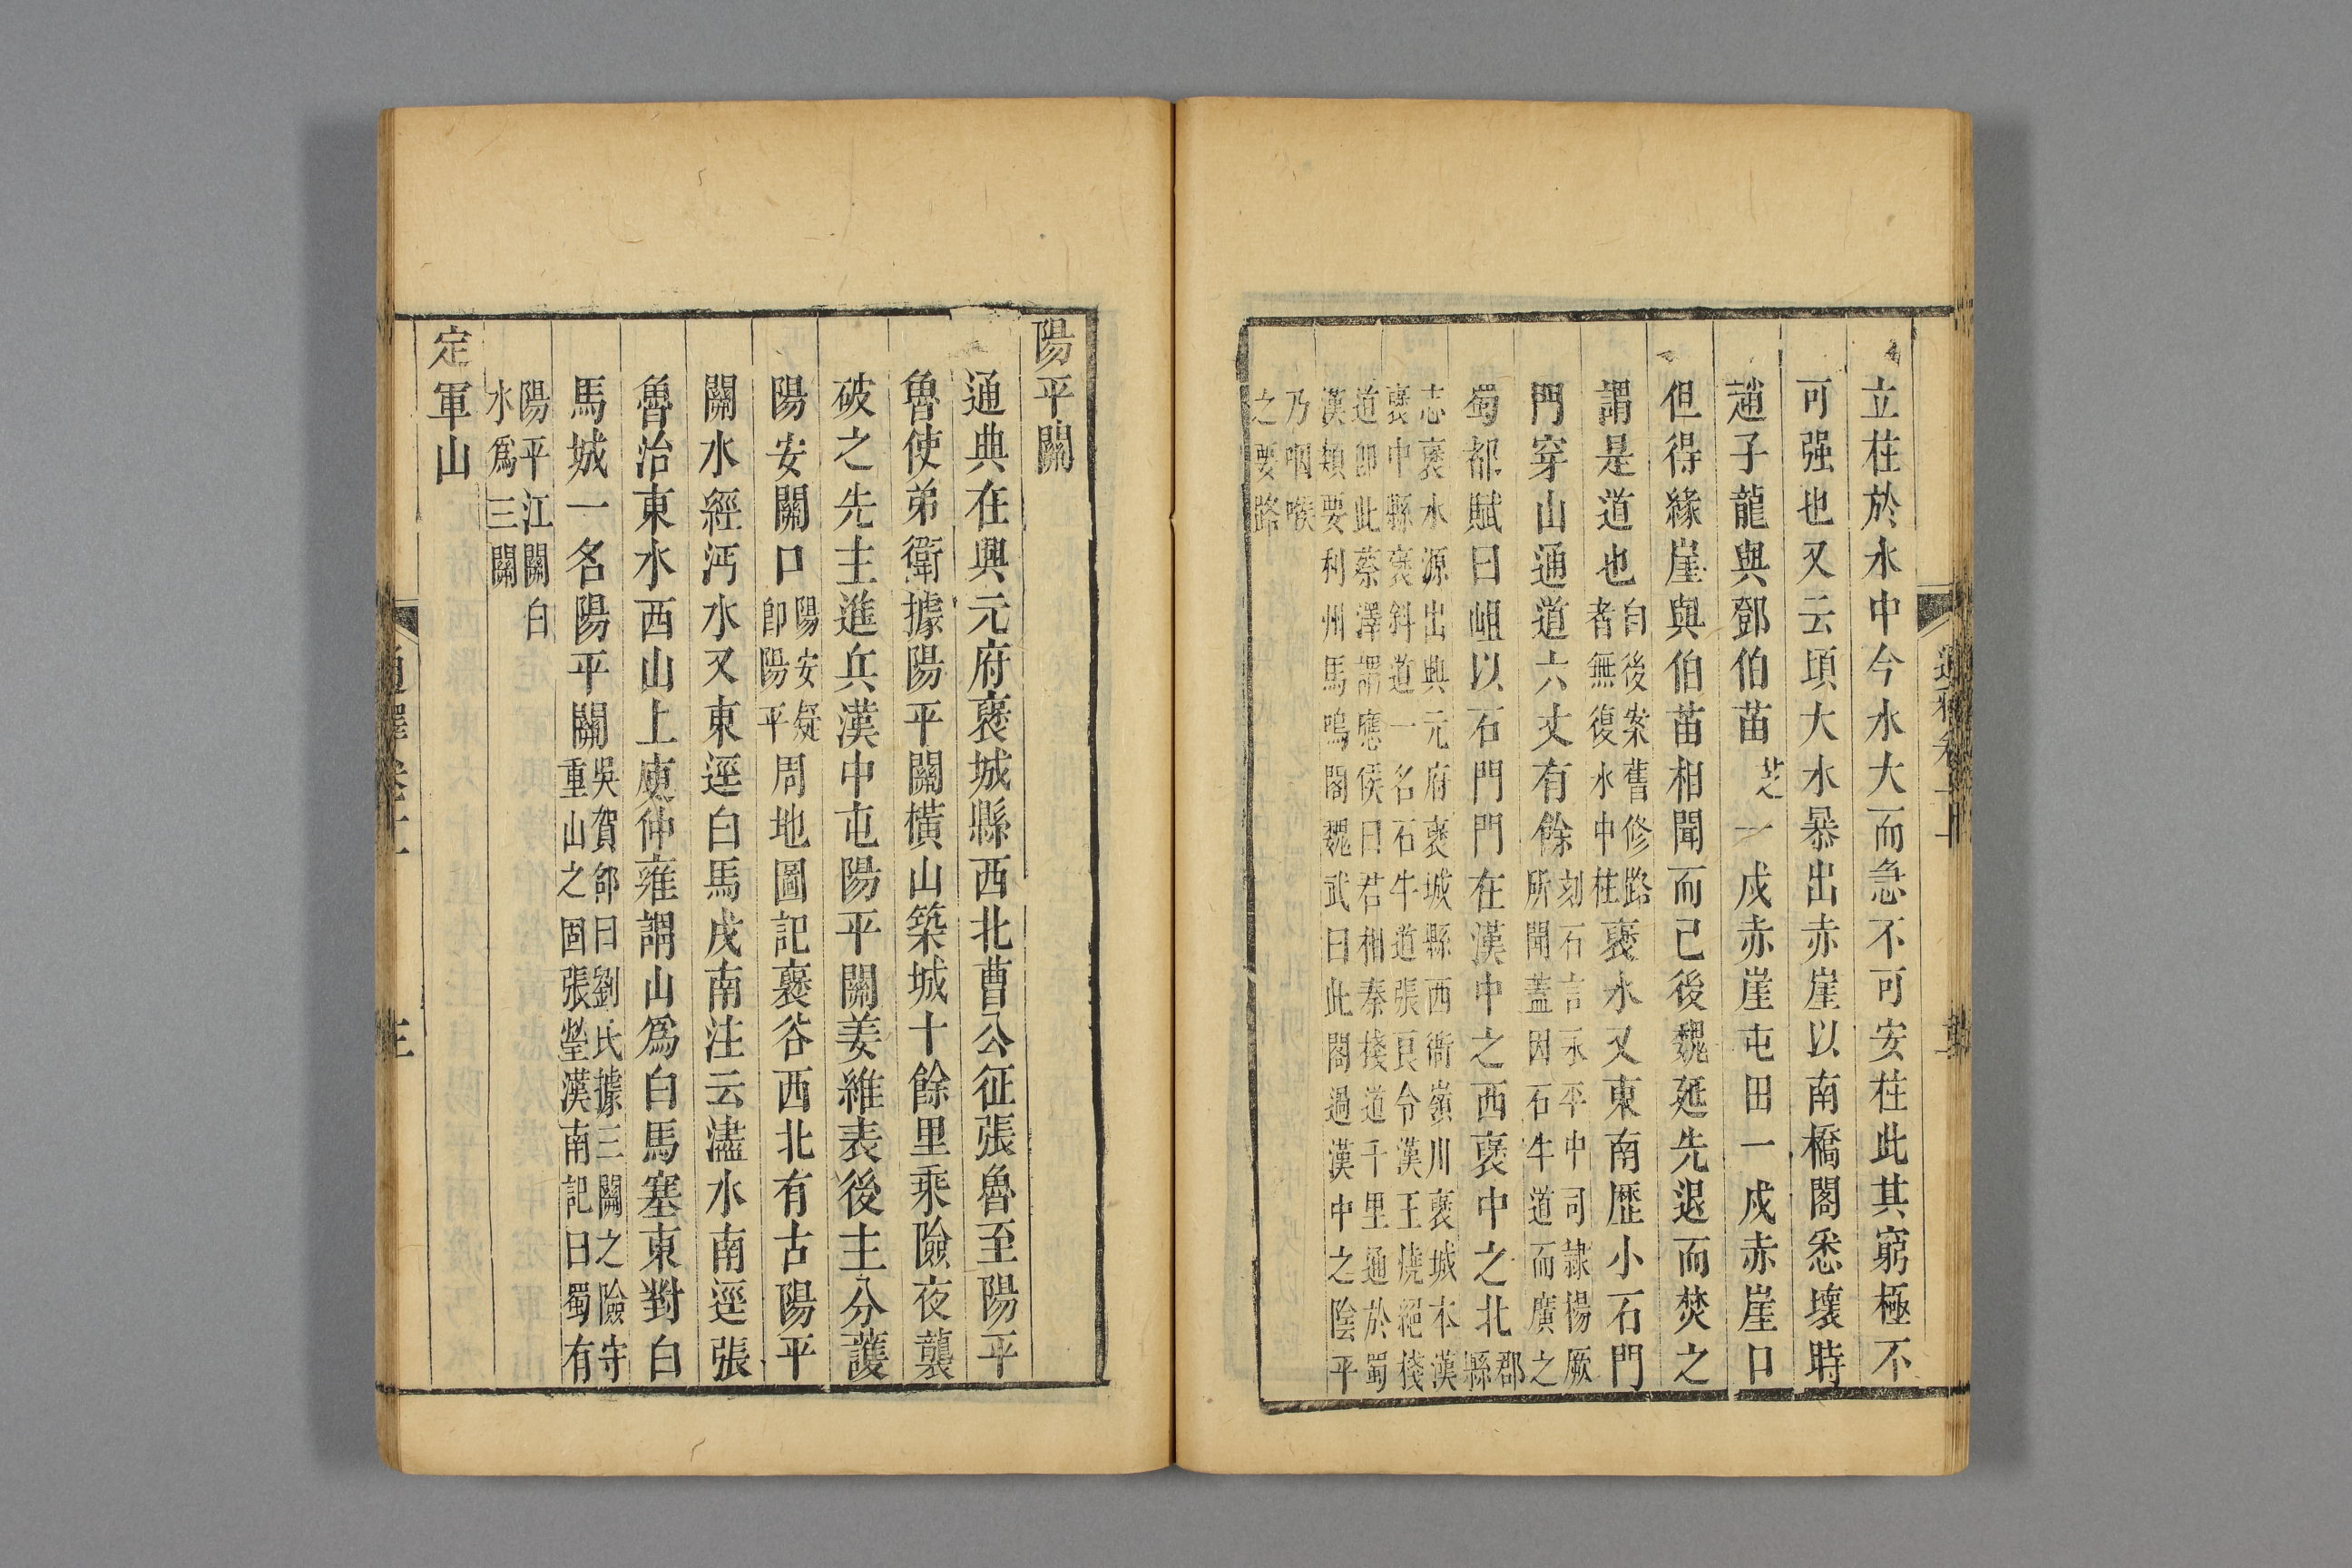 立柱於水中今水大而急不可安柱此其窮極不
可强也又云頃大水暴出赤崖以南橋閣悉壞時
趙子龍與鄧伯苗芝一戍赤崖屯田一戍赤崖口
但得緣崖與伯苗相聞而已後魏延先退而焚之
謂是道也自後案舊修路者無復水中柱褒水又東南歷小石門
門穿山通道六丈有餘刻石言永平中司隷楊厥所開蓋因石牛道而廣之
蜀都賦曰岨以石門門在漢中之西褒中之北郡縣
志褒水源出興元府褒城縣西衙嶺川褒城本漢
褒中縣褒斜道一名石牛道張良令漢王燒絕棧
道卽此蔡澤謂應侯曰君相秦棧道千里通於蜀
漢類要利州馬鳴閣魏武曰此閣過漢中之陰平
乃咽喉
之要路
陽平關
通典在興元府褒城縣西北曹公征張魯至陽平
魯使弟衛據陽平關橫山築城十餘里乘險夜襲
破之先主進兵漢中屯陽平關姜維表後主分護
陽安關口陽安疑卽陽平周地圖記褒谷西北有古陽平
關水經沔水又東逕白馬戍南注云濜水南逕張
魯治東水西山上庾仲雍謂山爲白馬塞東對白
馬城一名陽平關吳賀邵曰劉氏據三關之險守重山之固張瑩漢南記曰蜀有
陽平江關白
水爲三關
定軍山